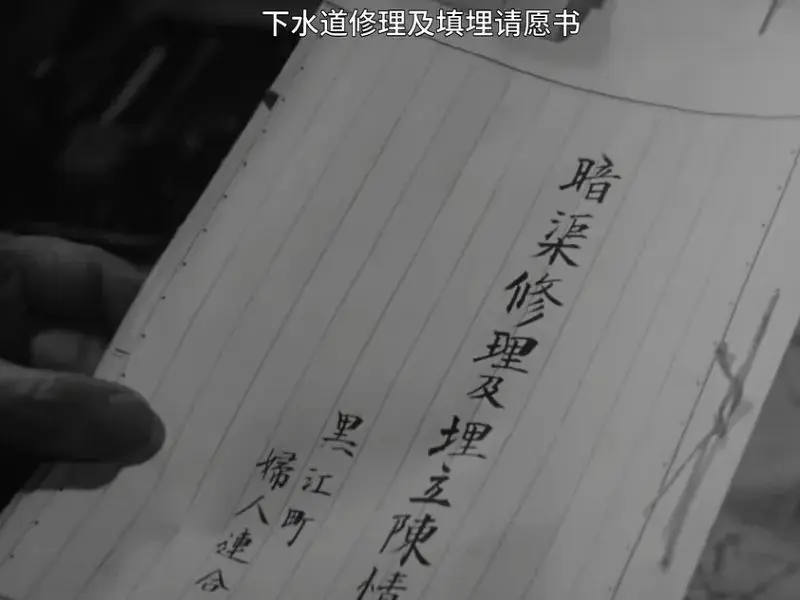 下水道修理及填埋请愿书
暗渠修理及埋立陳情
黒江町
婦人連合